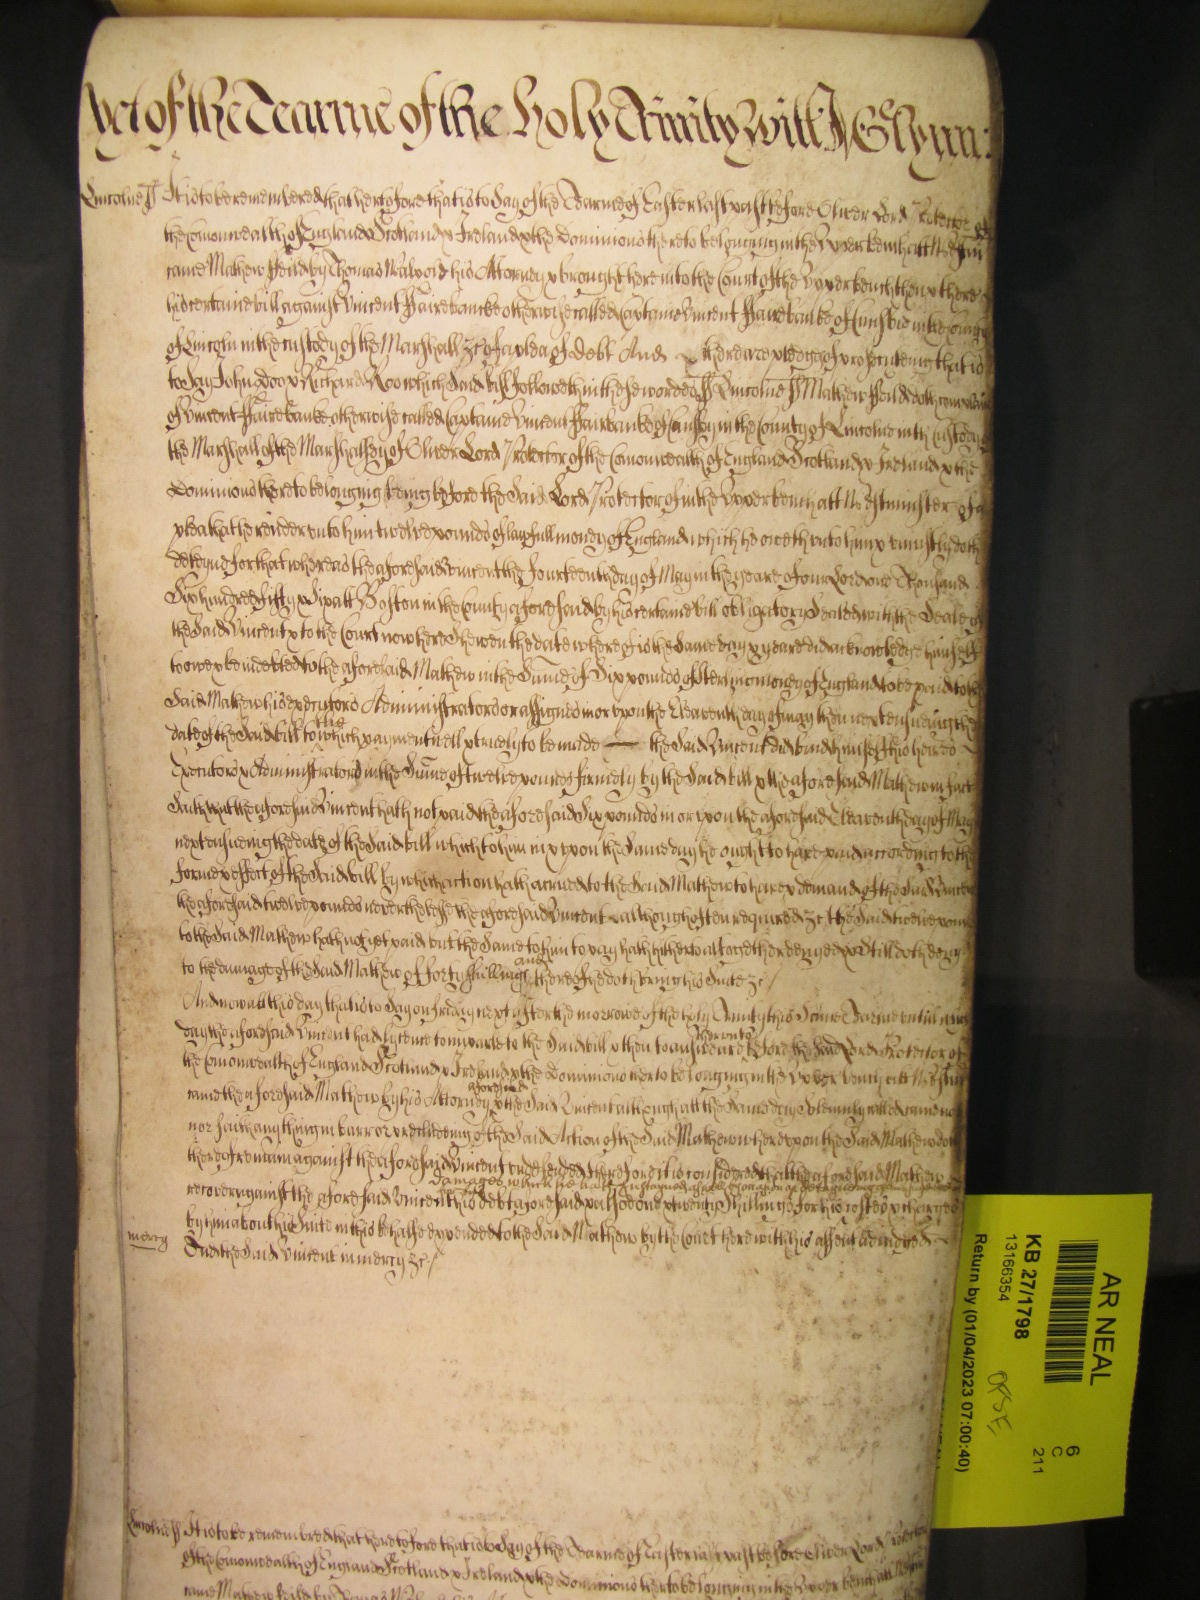 yet of the Tearme of the Holy Trinity Witt J Glynn:
Lincolne ss It is to be remembred that heretofore that is to say of the Tearme of Easter last past before Oliver Lord Protector of
the Comonwealth of England Scotland & Ireland & the dominions thereto belonging in the Upper bench att Westm
came Mathew by Thomas his Attorney & brought here into the Court of the Upper bench then & there
his certaine bill against Vincent ffairebancke otherwise called Captaine Vincent ffairebanke of in the County
of Lincoln in the custody of the Marshall &c of a plea of debt And there are pledges of prosecuting that is
to say John Doo & Richard Roo which said bill followeth in these wordes ss Lincolne ss Mathew doth complaine
of Vincent ffairebanke otherwise called Captaine Vincent ffairbanke of in the County of Lincolne in the custody of
the Marshall of the Marshalsey of Oliver Lord Protector of the Comonwealth of England Scotland & Ireland & the
Dominions thereto belonging being before the said Lord Protector in the Upper bench att Westminster of a
plea that he render unto him twelve pounds of lawfull money of England which he oweth unto him & uniustly doth
deteyne for that whereas the aforesaid Vincent the fourteenth day of May in the yeare of our Lord one Thousand
Six hundred fifty & Six att Boston in the County aforesaid by his certaine bill obligatory Sealed with the Seale of
the said Vincent & to the Court now here shewen the date whereof is the same day & yeare did acknowledge himself
to owe & be indebted to the aforesaid Mathew in the Sume of Six pounds of sterling money of England to be paid to the
said Mathew his executors Administrators or assignes in or upon the Eleaventh day of may then next ensueing the
date of the said bill to the which payment well & truely to be made the said Vincent did bind himself his heires
Executors & Administrators in the Sume of twelve pounds firmely by the said bill & the aforesaid Mathew in fact
saith that the aforesaid Vincent hath not paid the aforesaid Six pounds in or upon the aforesaid Eleaventh day of May
next ensueing the date of the said bill which to him in & upon the same day he ought to have paid according to the
forme & effect of the said bill by which action hath accrued to the said Mathew to have & demand of the said Vincent
the aforesaid twelve pounds neverthelesse the aforesaid Vincent although often required &c the said twelve pounds
to the said Mathew hath not yet paid but the same to him to pay hath hitherto altogether denyed & still doth deny
to the damage of the said Mathew of forty shillings and thereof he doth bring his suite &c
And now att this day that is to say on Friday next after the morrowe of the holy Trinity this same Tearme untill which
day the aforesaid Vincent had lycence to imparle to the said bill & then to answeare thereunto before the said Lord Protector of
the Comonwealth of England Scotland & Ireland & the dominions thereto belonging in the Upper bench att Westm
came the aforesaid Mathew by his Attorney aforesaid & the said Vincent although att the same day solemnly called came not
nor saith any thing in barr or precludeing of the said Action of the said Mathew whereupon the said Mathew doth
thereof remain against the aforesaid Vincent undefended therefore it is considered that the aforesaid Mathew
recover against the aforesaid Vincent his debt aforesaid & alsoe one & twenty Shillings for his
damages which he hath sustayned
costs & charges
by him about his suite in this behalfe expended to the said Mathew by the Court here with his assent adiudged
mercy
And the said Vincent in mercy &c
Lincolne ss It is to be remembred that heretofore that is to say of the Tearme of Easter last past before Oliver Lord Protector
of the Comonwealth of England Scotland & Ireland & the dominions thereto belonging in the Upper bench att Westm
came Mathew by Thomas
AR NEAL
KB 27/1798
13166354
Return by (01/04/2023 07:00:40)
6
C
211